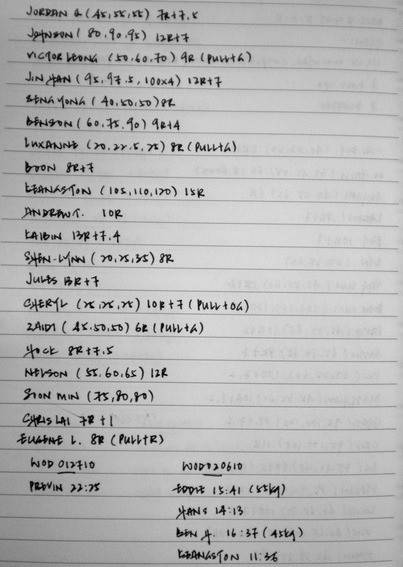 JORDAN G (45,55,55) 7R+7.5
JOHNSON (80,90,95) 12R+7
VICTOR LEONG (50,60,70) 9R (PULL+G)
JIN HAN (95,97.5,100x4) 12R+7
SENG YONG (40,50,50) 8R
BENSON (60,75,90) 9R+4
LUXANNE (20,22.5,25) 8R (PULL+G)
BOON 8R+7
KEANGSTON (105,110,120) 15R
ANDREW T. 10R
KAIBIN 13R+7.4
SHEN-LYNN (20,25,35) 8R
JULES 13R+7
CHERYL (25,25,25) 10R+7 (PULL+OG)
ZAIDI (45,50,50) 6R (PULL+G)
HOCK 8R+7.5
NELSON (55,60,65) 12R
SOON MIN (75,80,80)
CHRIS LAI 7R+1
EUGENE L. 8R (PULL+R)
WOD 012710
PREVIN 22:25
WOD 020610
EDDIE 15:41 (55kg)
HANS 14:13
BEN H. 16:37 (45kg)
KEANGSTON 11:36